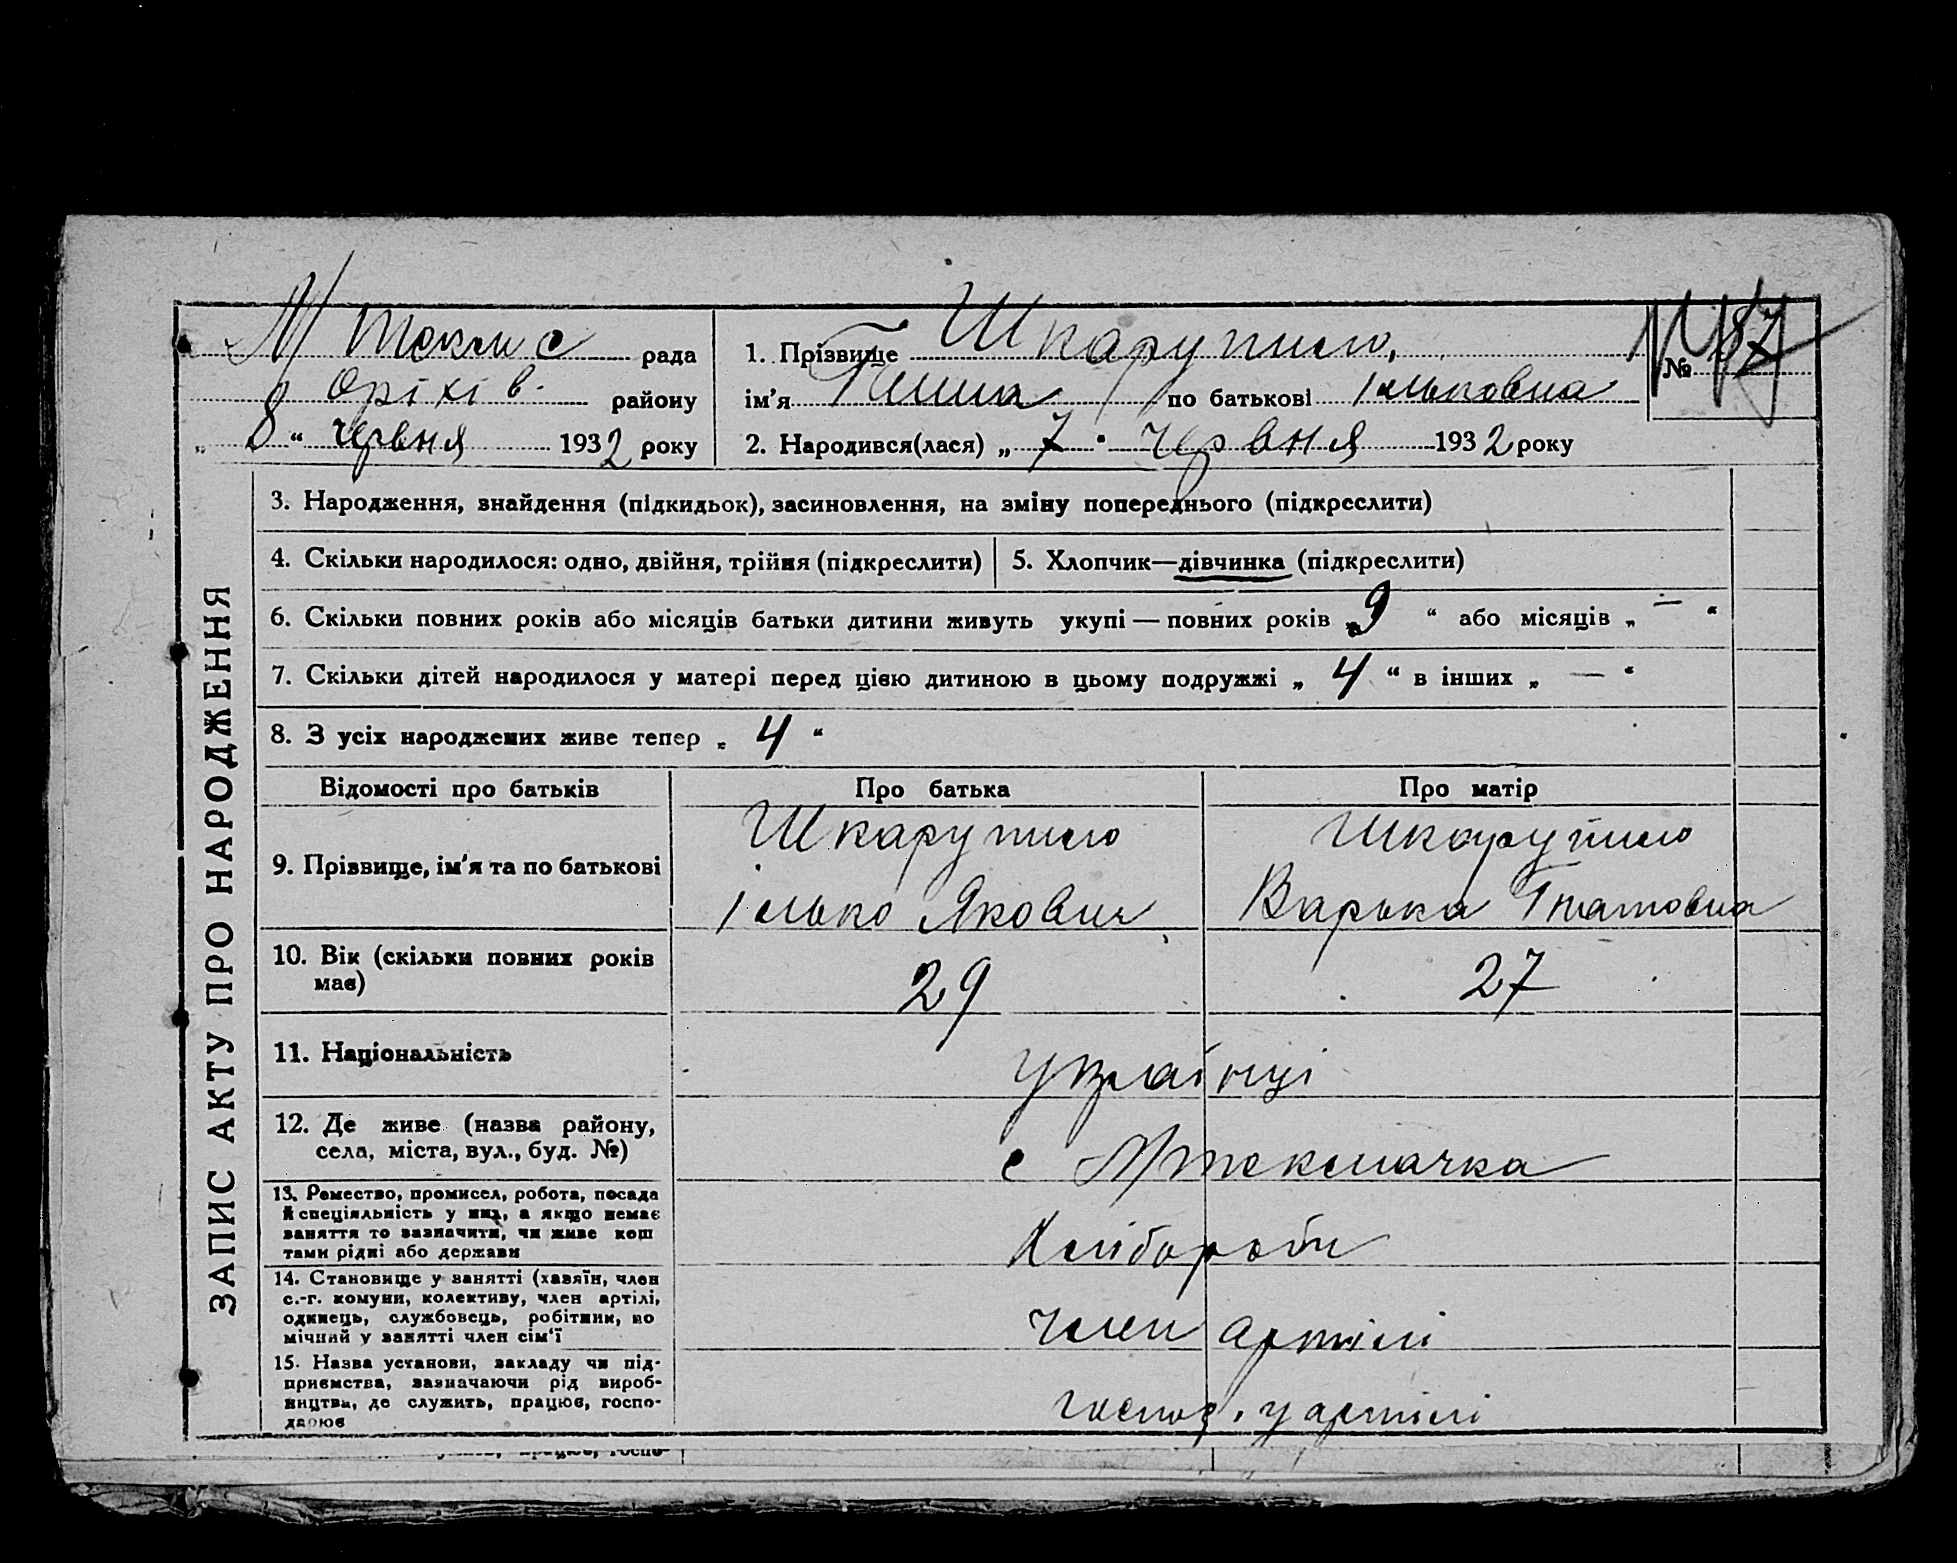 М/Токм с рада
Оріхів. району
„ 8 “ червня 1932 року
1. Прізвище Шкарупило,
ім'я Ганна по батькові Ільковна
2. Народився(лася) „ 7 “ червня 1932 року
№ 87
ЗАПИС АКТУ ПРО НАРОДЖЕННЯ
3. Народження, знайдення (підкидьок), засиновлення, на зміну попереднього (підкреслити)
4. Скільки народилося: одно, двійня, трійня (підкреслити)
5. Хлопчик—дівчинка (підкреслити)
6. Скільки повних років або місяців батьки дитини живуть укупі — повних років „ 9 “ або місяців „ — “
7. Скільки дітей народилося у матері перед цією дитиною в цьому подружжі „ 4 “ в інших „ — “
8. З усіх народжених живе тепер „ 4 “
Відомості про батьків Про батька Про матір
9. Прізвище, ім'я та по батькові
Шкарупило
Ілько Якович
Шкарупило
Варька Гнатовна
10. Вік (скільки повних років
має)
29 27
11. Національність
українці
12. Де живе (назва району,
села, міста, вул., буд. №)
с М/Токмачка
13. Ремество, промисел, робота, посада
й спеціяльність у них, а якщо немає
заняття то зазначити, чи живе кош
тами рідні або держави
Хлібороби
14. Становище у занятті (хазяїн, член
с.-г. комуни, колективу, член артілі,
одинець, службовець, робітник, по
мічний у занятті член сім'ї
член артілі
15. Назва установи, закладу чи під-
приємства, зазначаючи рід вироб-
ництва, де служить, працює, госпо-
дарює
господ. у артілі
працює, госпо-